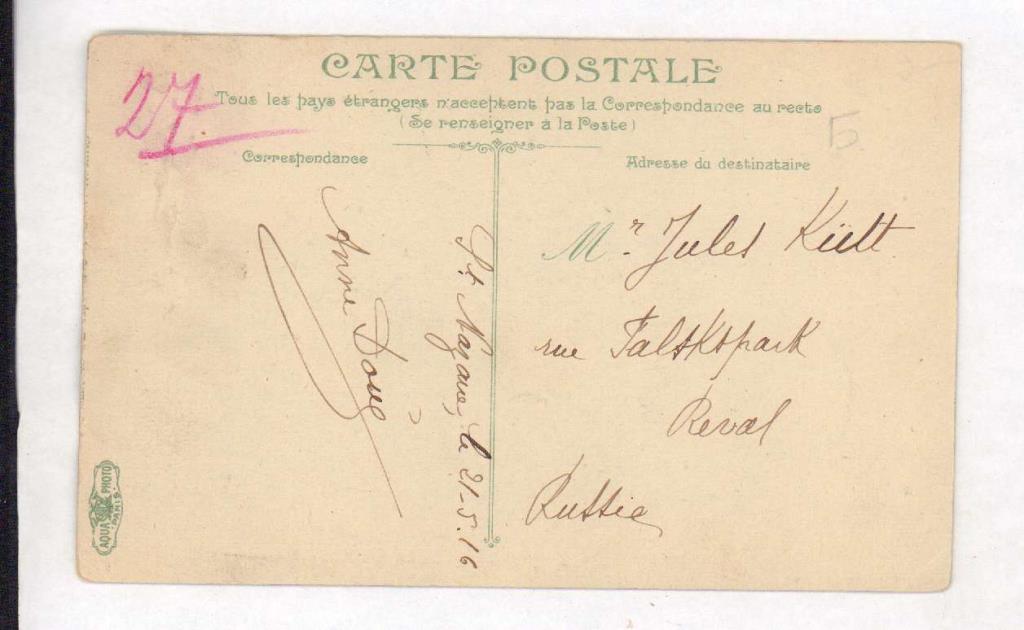 CARTE POSTALE
27
Tous les pays étrangers n'acceptent pas la Correspondance au recto
(Se renseigner à la Poste)
Correspondance
Adresse du destinataire
St Nazaire, le 21-5.16
Anne
Mr. Jules Küllt
rue Falskspark
Reval
Russie
AQUA PHOTO
PARIS